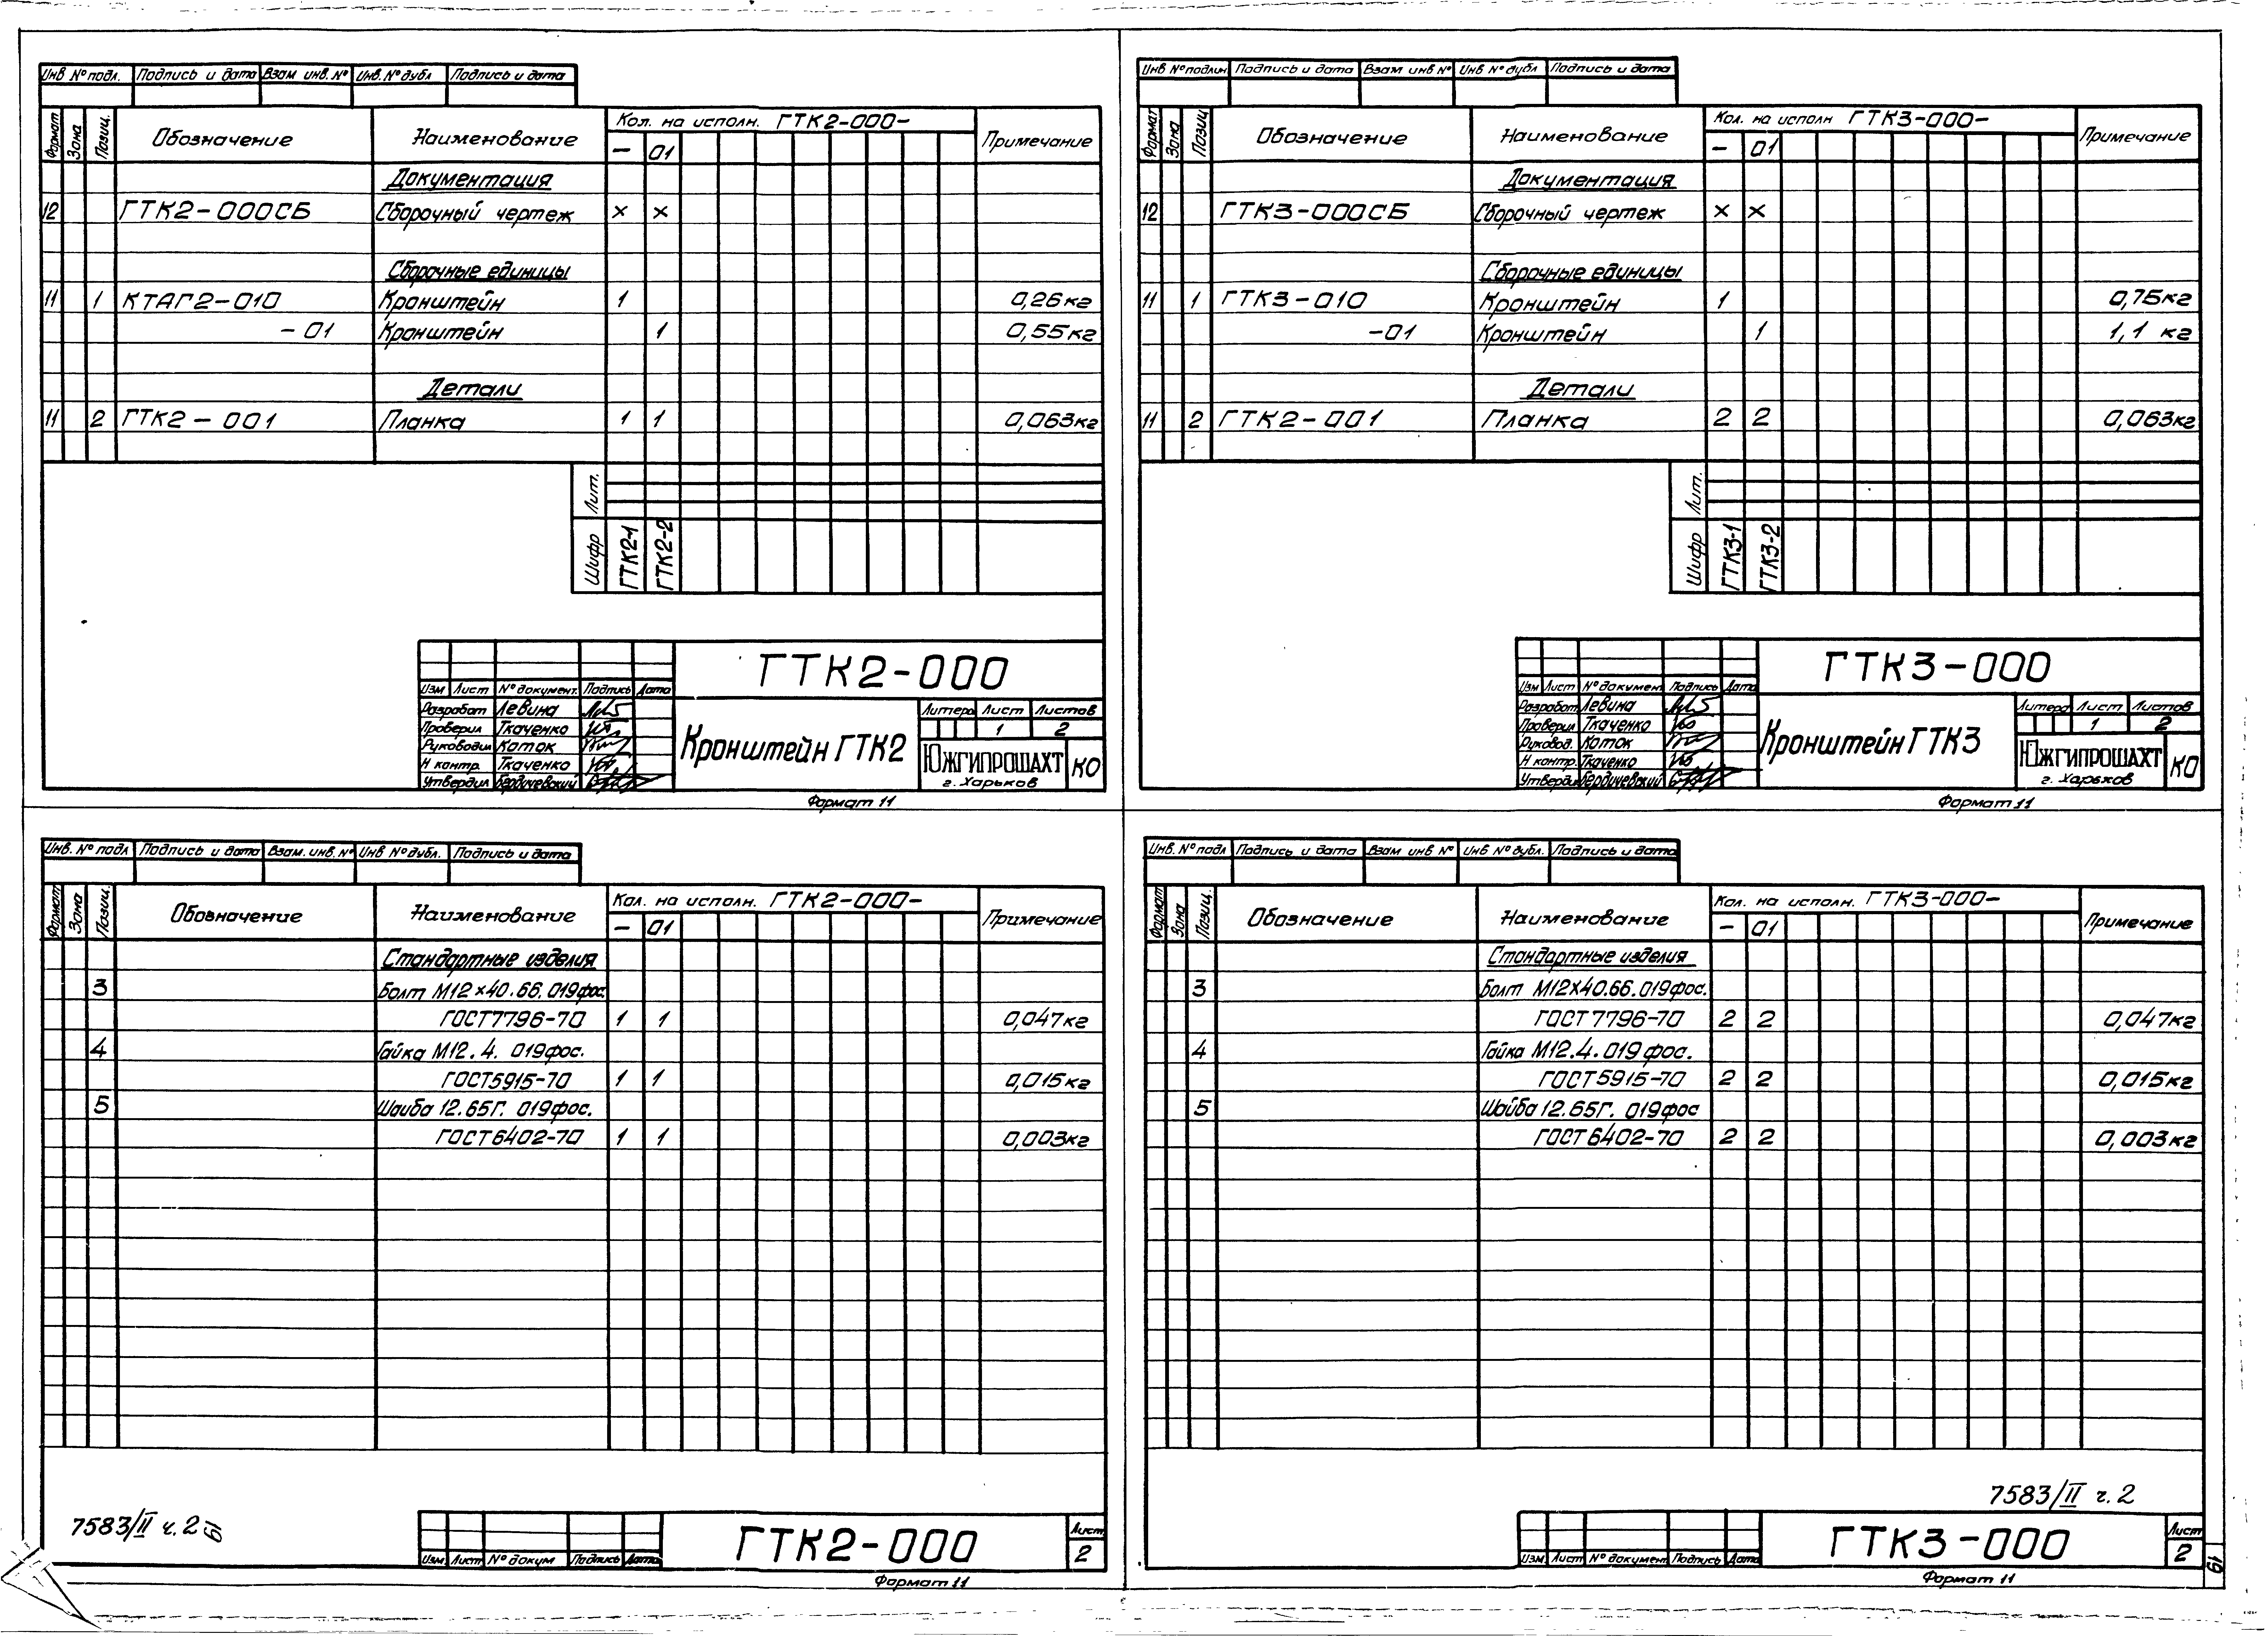 Инв № подл. Подпись и дата Взам инв. № Инв. № дубл Подпись и дата
Формат Зона Позиц. Обозначение Наименование Кол. на исполн. ГТК2-000- Примечание
– 01
Документация
12 ГТК2-000СБ Сборочный чертеж × ×
Сборочные единицы
11 1 КТАГ2-010 Кронштейн 1 0,26кг
-01 Кронштейн 1 0,55кг
Детали
11 2 ГТК2-001 Планка 1 1 0,063кг
Лит.
Шифр ГТК2-1 ГТК2-2
ГТК2-000
Изм Лист № документ. Подпись Дата
Разработ Левина
Проверил Ткаченко
Руководил Коток
Н контр. Ткаченко
Утвердил Бердичевский
Кронштейн ГТК2
Литера Лист Листов
1 2
ЮЖГИПРОШАХТ КО
г. Харьков
Формат 11
Инв № подлин Подпись и дата Взам инв № Инв № дубл Подпись и дата
Формат Зона Позиц Обозначение Наименование Кол. на исполн ГТК3-000- Примечание
– 01
Документация
12 ГТК3-000СБ Сборочный чертеж × ×
Сборочные единицы
11 1 ГТК3-010 Кронштейн 1 0,75кг
-01 Кронштейн 1 1,1 кг
Детали
11 2 ГТК2-001 Планка 2 2 0,063кг
Лит.
Шифр ГТК3-1 ГТК3-2
ГТК3-000
Изм Лист № документ Подпись Дата
Разработ Левина
Проверил Ткаченко
Руковод. Коток
Н контр. Ткаченко
Утвердил Бердичевский
Кронштейн ГТК3
Литера Лист Листов
1 2
ЮЖГИПРОШАХТ КО
г. Харьков
Формат 11
Инв. № подл Подпись и дата Взам. инв. № Инв № дубл. Подпись и дата
Формат Зона Позиц. Обозначение Наименование Кол. на исполн. ГТК2-000- Примечание
– 01
Стандартные изделия
3 Болт М12×40.66.019фос.
ГОСТ7796-70 1 1 0,047кг
4 Гайка М12.4. 019фос.
ГОСТ5915-70 1 1 0,015кг
5 Шайба 12.65Г. 019фос.
ГОСТ6402-70 1 1 0,003кг
7583/II ч.2 19
Изм Лист № докум Подпись Дата
ГТК2-000
Лист
2
Формат 11
Инв. № подл Подпись и дата Взам инв № Инв № дубл. Подпись и дата
Формат Зона Позиц. Обозначение Наименование Кол. на исполн. ГТК3-000- Примечание
– 01
Стандартные изделия
3 Болт М12×40.66.019фос.
ГОСТ7796-70 2 2 0,047кг
4 Гайка М12.4.019 фос.
ГОСТ5915-70 2 2 0,015кг
5 Шайба 12.65Г. 019фос
ГОСТ6402-70 2 2 0,003кг
7583/II ч.2
Изм Лист № документ Подпись Дата
ГТК3-000
Лист
2
Формат 11
19